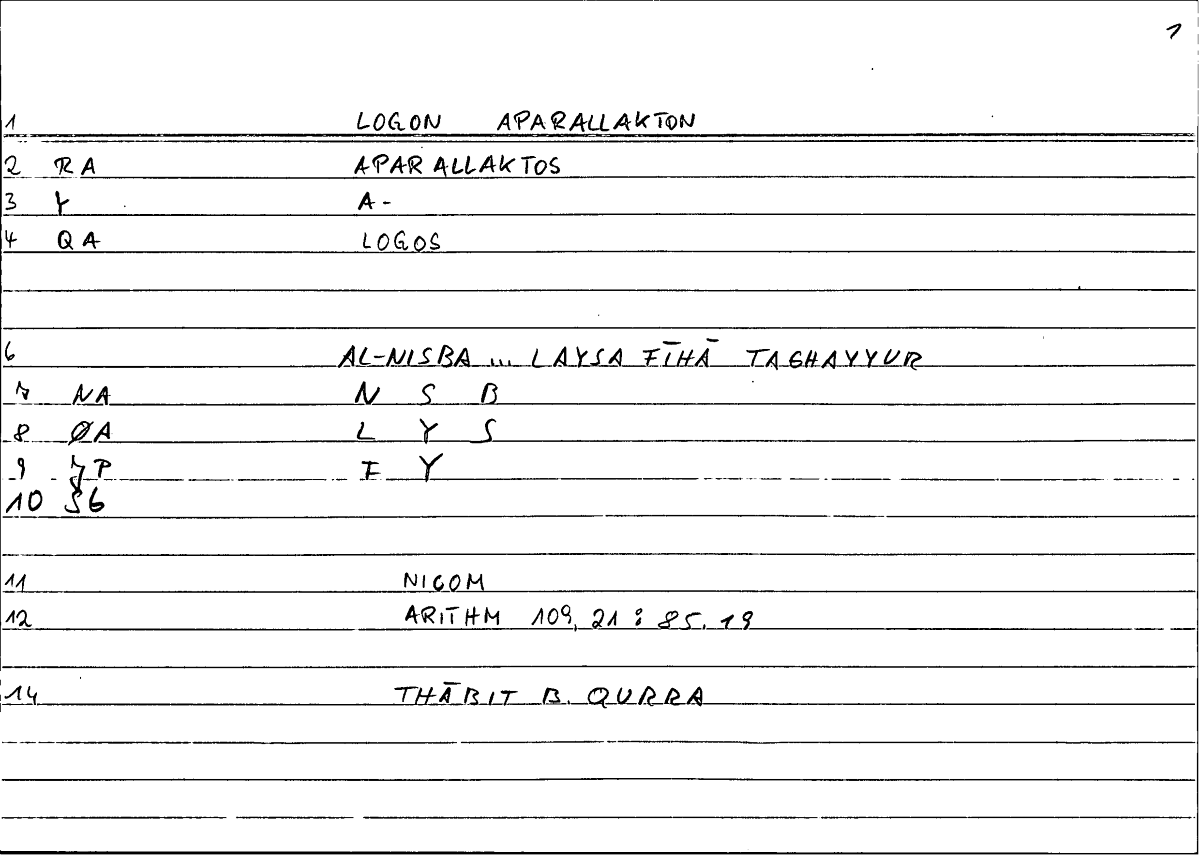 1
1 LOGON APARALLAKTON
2 RA APARALLAKTOS
3 Y A-
4 QA LOGOS
6 AL-NISBA ... LAYSA FĪHĀ TAGHAYYUR
7 NA N S B
8 ØA L Y S
9 7P F Y
10 §6
11 NICOM
12 ARITHM 109, 21 : 85. 19
14 THĀBIT B. QURRA